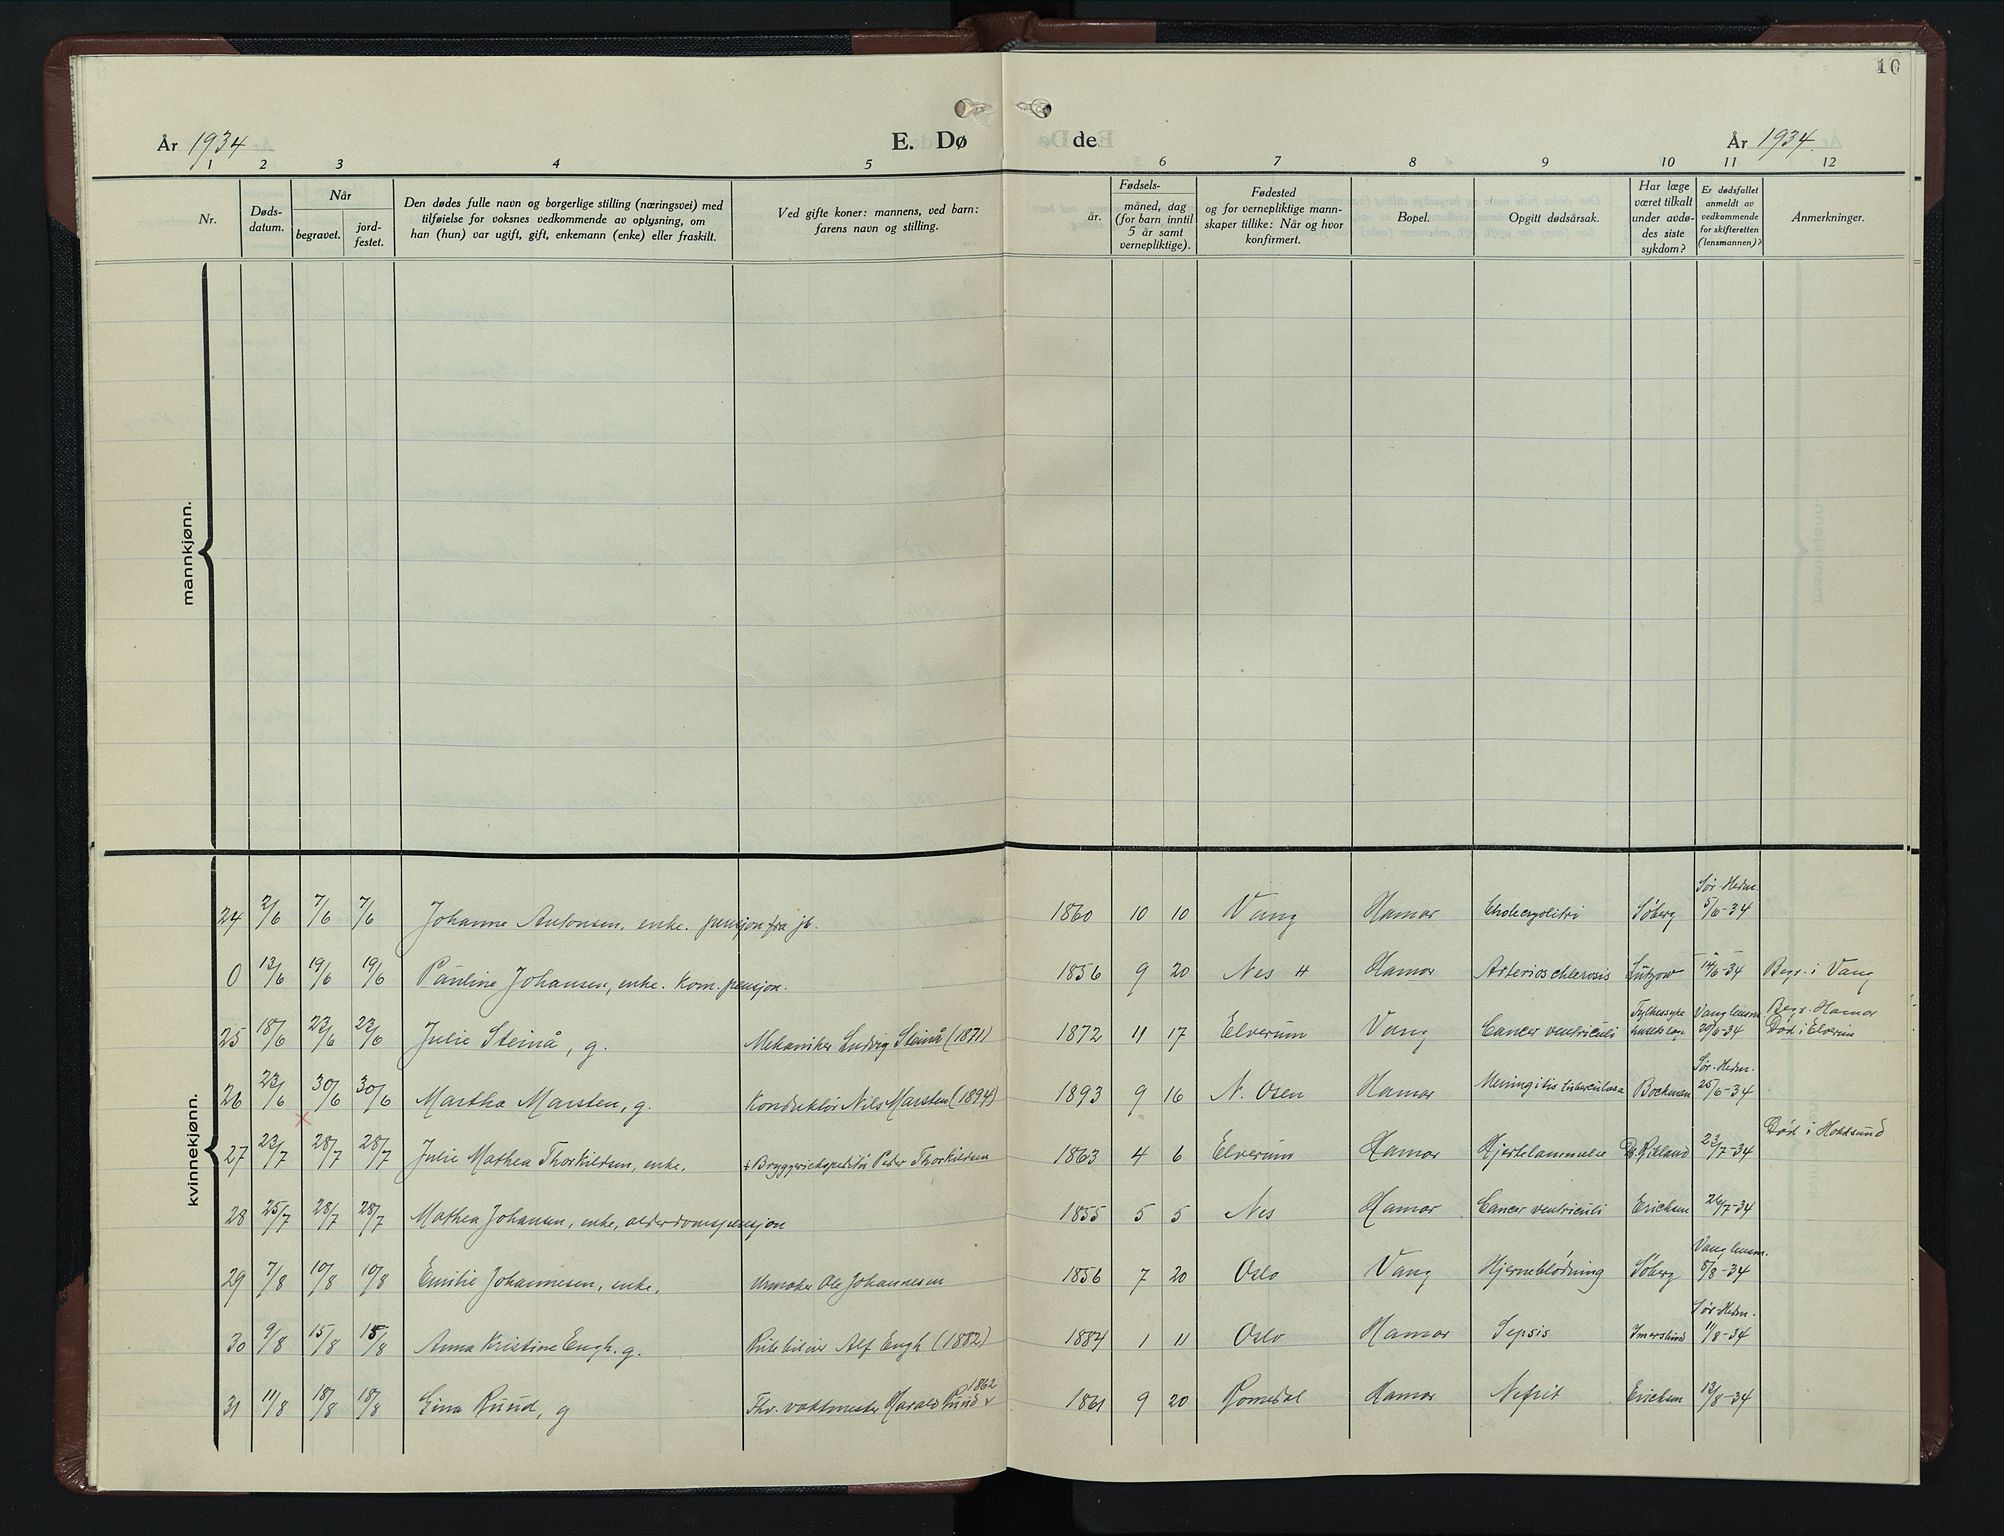 10
År 1934 E. Dø de. År 1934
1 2 3 4 5 6 7 8 9 10 11 12
Nr.
Døds-
datum.
Når
begravet.
jord-
festet.
Den dødes fulle navn og borgerlige stilling (næringsvei) med
tilføielse for voksnes vedkommende av oplysning, om
han (hun) var ugift, gift, enkemann (enke) eller fraskilt.
Ved gifte koner: mannens, ved barn:
farens navn og stilling.
Fødsels-
år.
måned, dag
(for barn inntil
5 år samt
vernepliktige).
Fødested
og for vernepliktige mann-
skaper tillike: Når og hvor
konfirmert.
Bopel.
Opgitt dødsårsak.
Har læge
været tilkalt
under avdø-
des siste
sykdom?
Er dødsfallet
anmeldt av
vedkommende
for skifteretten
(lensmannen)?
Anmerkninger.
mannkjønn.
kvinnekjønn.
Sør-Hedm.
24 2/6 7/6 7/6 Johanne Antonsen, enke. pensjon fra jb. 1860 10 10 Vang Hamar Cholecystitri Søberg 5/6-34
0 13/6 19/6 19/6 Pauline Johansen, enke. kom. pensjon. 1856 9 20 Nes H Hamar Arterioschlerosis Lützow 14/6-34 Begr. i Vang
Vang lensm. Begr. Hamar
25 18/6 23/6 23/6 Julie Steinå, g. Mekaniker Ludvig Steinå (1871) 1872 11 17 Elverum Vang Cancer ventriculi 20/6-34 Død i Elverum
Sør-Hedm.
26 23/6 30/6 30/6 Martha Marsten, g. Konduktør Nils Marsten (1894) 1893 9 16 N. Osen Hamar Meningitis tuberculosa Bockman 25/6-34
Død i Hokksund
27 23/7 28/7 28/7 Julie Mathea Thorkildsen, enke, Peder Thorkildsen 1863 4 6 Elverum Hamar Hjertelammelse 23/7-34
28 25/7 28/7 28/7 Mathea Johansen, enke, alderdomspensjon 1855 5 5 Nes Hamar Cancer ventriculi Erichsen 26/7-34
Vang lensm.
29 7/8 10/8 10/8 Emilie Johannesen, enke, Urmaker Ole Johannesen 1856 7 20 Oslo Vang Hjerneblødning Søberg 8/8-34
Sør-Hedm.
30 9/8 15/8 15/8 Anna Kristine Engh. g. Alf Engh (1882) 1884 1 11 Oslo Hamar Sepsis Imerslund 11/8-34
1862
31 11/8 18/8 18/8 Gina Ruud, g Fhv. vaktmester Harald Ruud 1861 9 20 Romedal Hamar Nefrit Erichsen 13/8-34